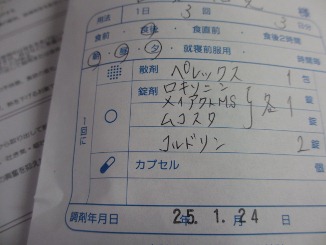 用法 1日 3 回 3 分 様
食前 食後 食直前 食後2時間
朝 昼 夕 就寝前服用 時間毎
散剤 ペレックス 1 包
錠剤 ロキソニン
錠剤 メイアクトMS 各1 錠
ムコスタ
コルドリン 2 錠
カプセル 個
1回に
調剤年月日 25. 年 1. 月 24 日